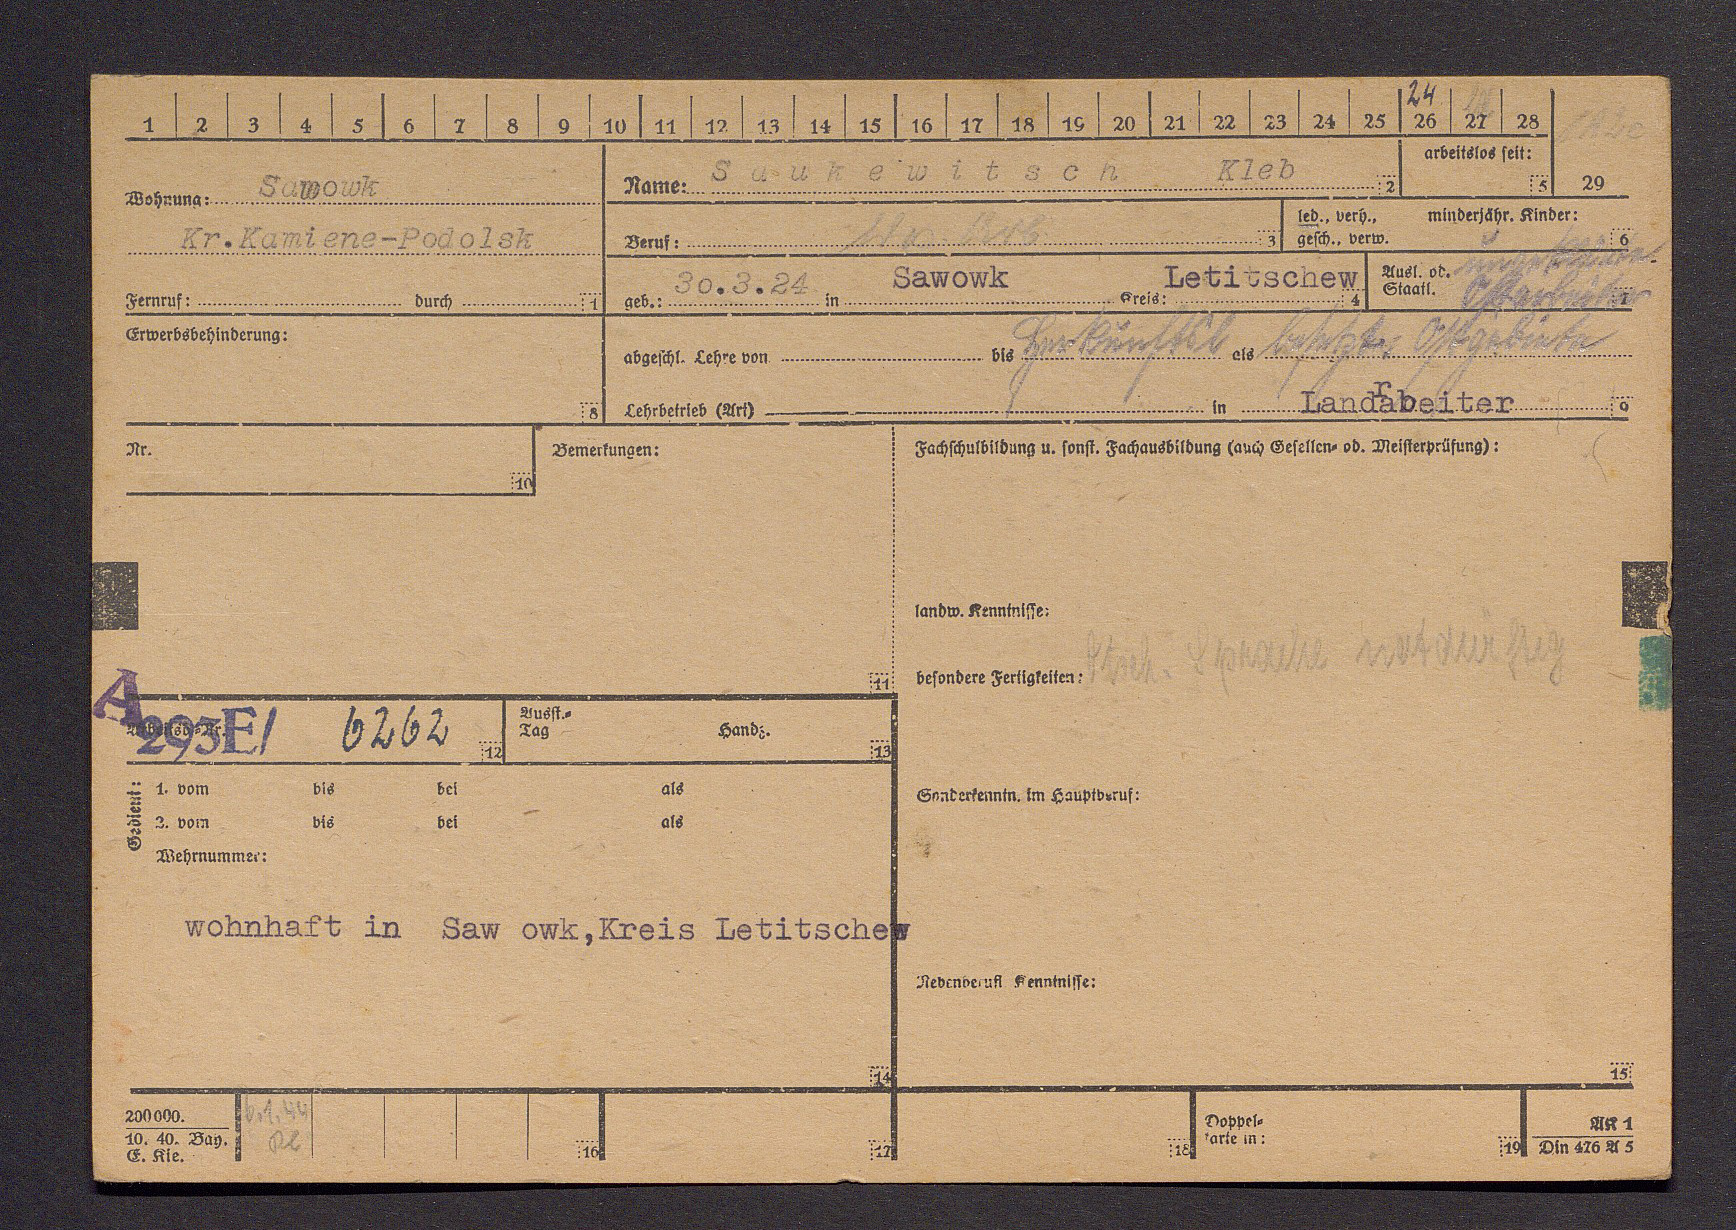 24
1 2 3 4 5 6 7 8 9 10 11 12 13 14 15 16 17 18 19 20 21 22 23 24 25 26 27 28
29
Wohnung: Sawowk
Kr.Kamiene-Podolsk
Fernruf: durch 1
Name: Saukewitsch Kleb 2
arbeitslos seit: 5
Beruf: 3
led., verh., minderjähr. Kinder:
gesch., verw. 6
geb.: 30.3.24 in Sawowk Kreis: Letitschew 4
Ausl. od.
Staatl. Ostarbeiter 7
Erwerbsbehinderung:
8
abgeschl. Lehre von bis als
Herkunftsl besetzte Ostgebiete
Lehrbetrieb (Art) in Landrabeiter 9
r
Nr.
10
Bemerkungen:
11
Fachschulbildung u. sonst. Fachausbildung (auch Gesellen- od. Meisterprüfung):
landw. Kenntnisse:
besondere Fertigkeiten: Dtsch. Sprache notdürftig
Sonderkenntn. im Hauptberuf:
Nebenberufl Kenntnisse:
15
A
Arbeitsb-Nr.
293E/ 6262 12
Ausst.-
Tag Handz. 13
Gedient:
1. vom bis bei als
2. vom bis bei als
Wehrnummer:
wohnhaft in Saw owk,Kreis Letitschew
14
200000.
10. 40. Bay.
E. Kie.
6.1.44
16
17
18
Doppel-
karte in: 19
AK 1
Din 476 A 5